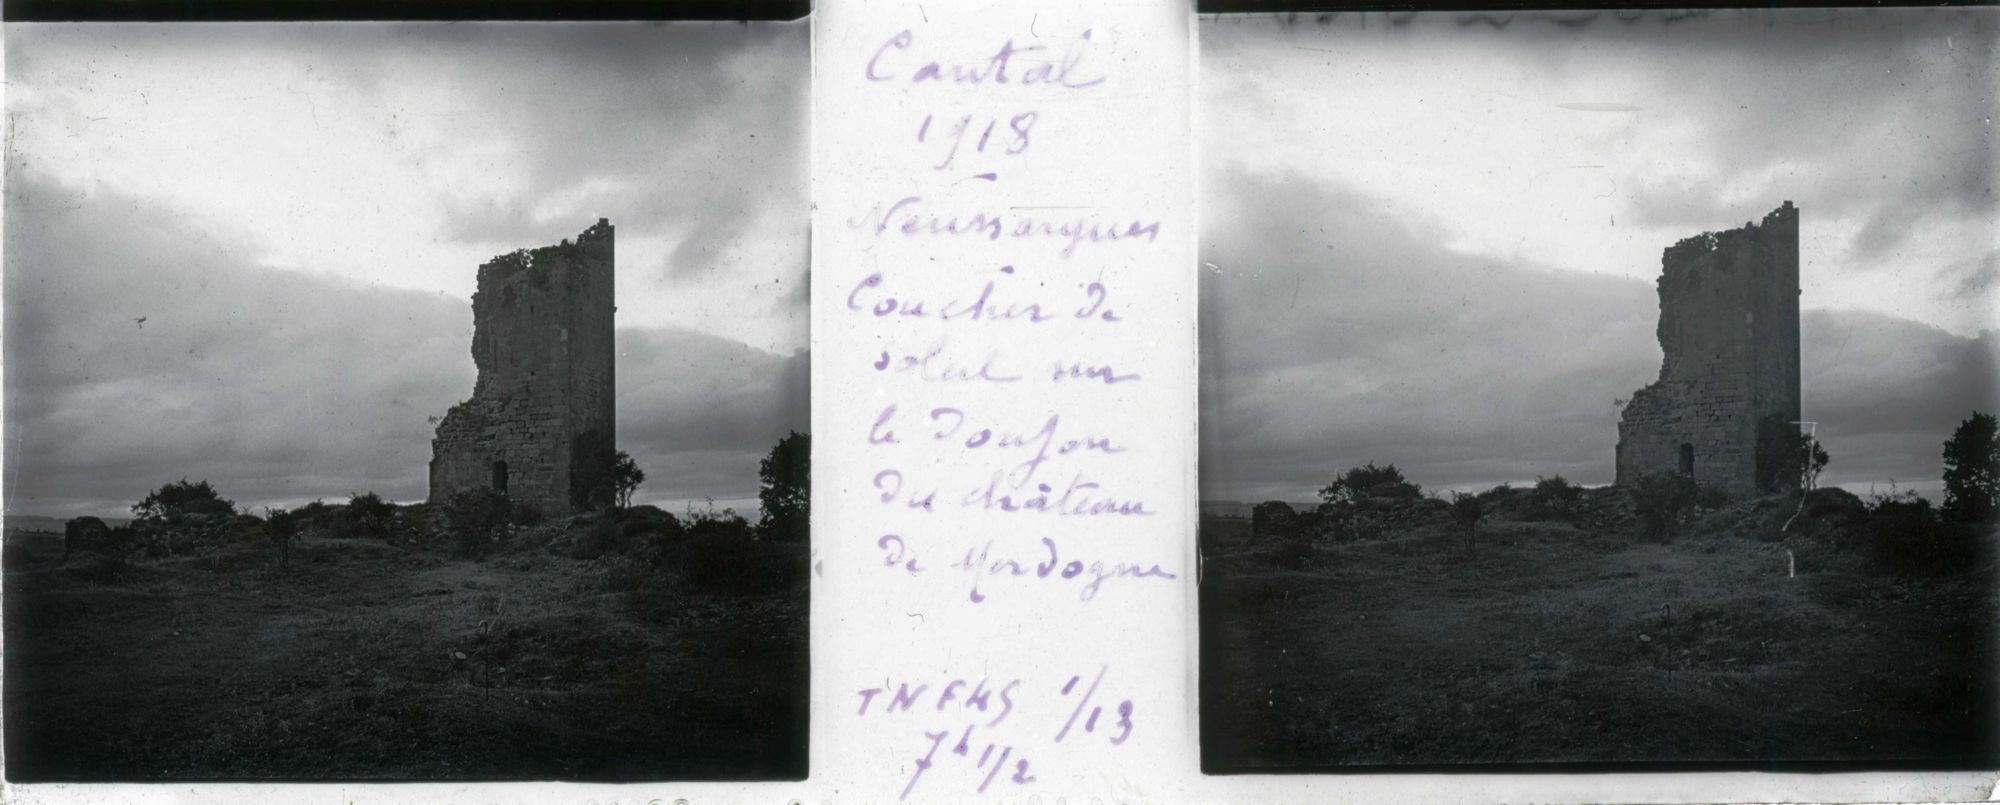 Cantal
1918
Neussargues
Coucher de
soleil sur
le donjon
du château
de Mordogne
TNFHS 1/13
7h 1/2